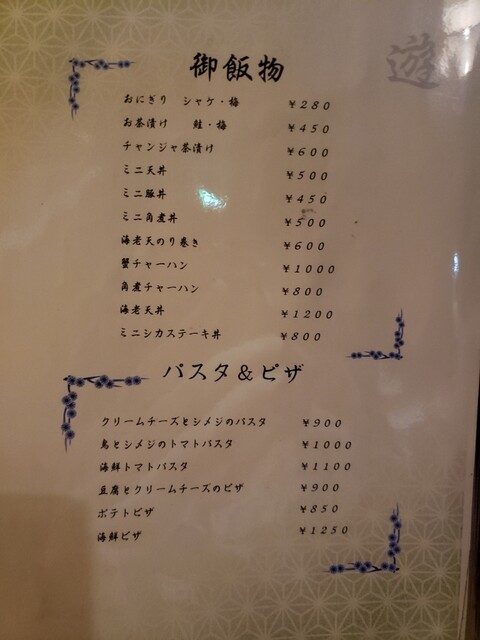 遊
御飯物
おにぎり シャケ・梅 ¥280
お茶漬け 鮭・梅 ¥450
チャンジャ茶漬け ¥600
ミニ天丼 ¥500
ミニ豚丼 ¥450
ミニ角煮丼 ¥500
海老天のり巻き ¥600
蟹チャーハン ¥1000
角煮チャーハン ¥800
海老天丼 ¥1200
ミニシカステーキ丼 ¥800
パスタ&ピザ
クリームチーズとシメジのパスタ ¥900
鳥とシメジのトマトパスタ ¥1000
海鮮トマトパスタ ¥1100
豆腐とクリームチーズのピザ ¥900
ポテトピザ ¥850
海鮮ピザ ¥1250